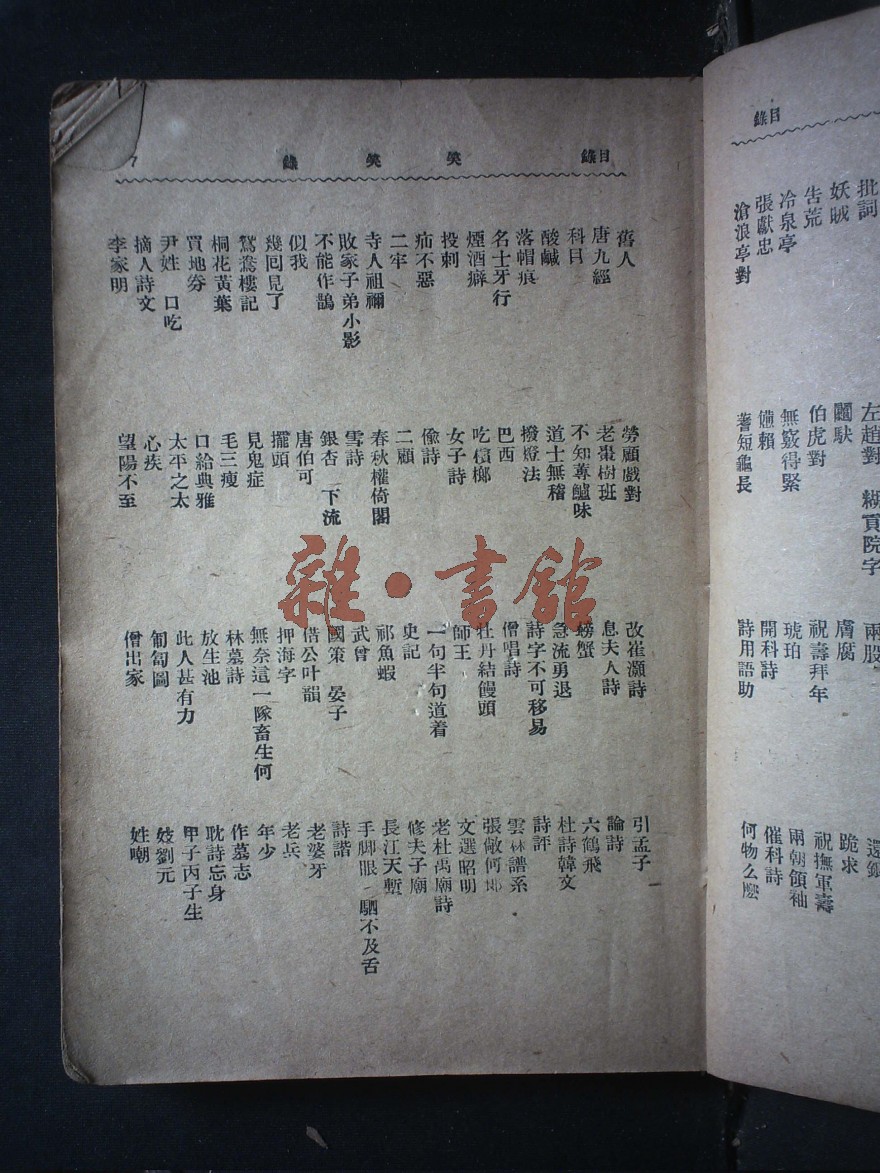 目錄
笑笑錄
7
舊人
唐九經
科目
酸鹹
落帽痕
名士牙行
煙酒癖
投刺
疝不惡
二牢
寺人祖禰
敗家子弟小影
不能作鵲
似我
幾回見了
鴛鴦樓記
桐花黃葉
買地券
尹姓 口吃
摘人詩文
李家明
勞顧戲對
老棗樹班
不知蓴鱸味
道士無稽
撥燈法
巴西
吃檳榔
女子詩
儉詩
二顧
春秋權倚閣
雪詩
銀杏 下流
唐伯可
擺頭
見鬼症
毛三瘦
口給典雅
太平之太
心疾
望陽不至
改崔灝詩
息夫人詩
螃蟹
急流勇退
詩字不可移易
僧唱詩
牡丹結饅頭
師王
一句半句道着
史記
祁魚蝦
武曾
國策 晏子
借公叶韻
押海字
無奈這一隊畜生何
林墓詩
放生池
此人甚有力
匍匐圖
僧出家
引孟子
論詩
六鶴飛
杜詩韓文
詩評
雲林譜系
張敞何郎
文選昭明
老杜禹廟詩
修夫子廟
長江天塹
手脚眼 駟不及舌
詩諧
老婆牙
老兵
年少
作墓志
耽詩忘身
甲子丙子生
妓劉元
姓嘲
雜·書館
目錄
批詞
妖賊
告荒
冷泉亭
張獻忠
滄浪亭對
左趙對 糊貢院字
伯虎對
無竅得緊
嬾賴
蓍短龜長
兩股
膚腐
祝壽拜年
琥珀
開科詩
詩用語助
還銀
跪求
祝撫軍壽
兩朝領袖
催科詩
何物么麼